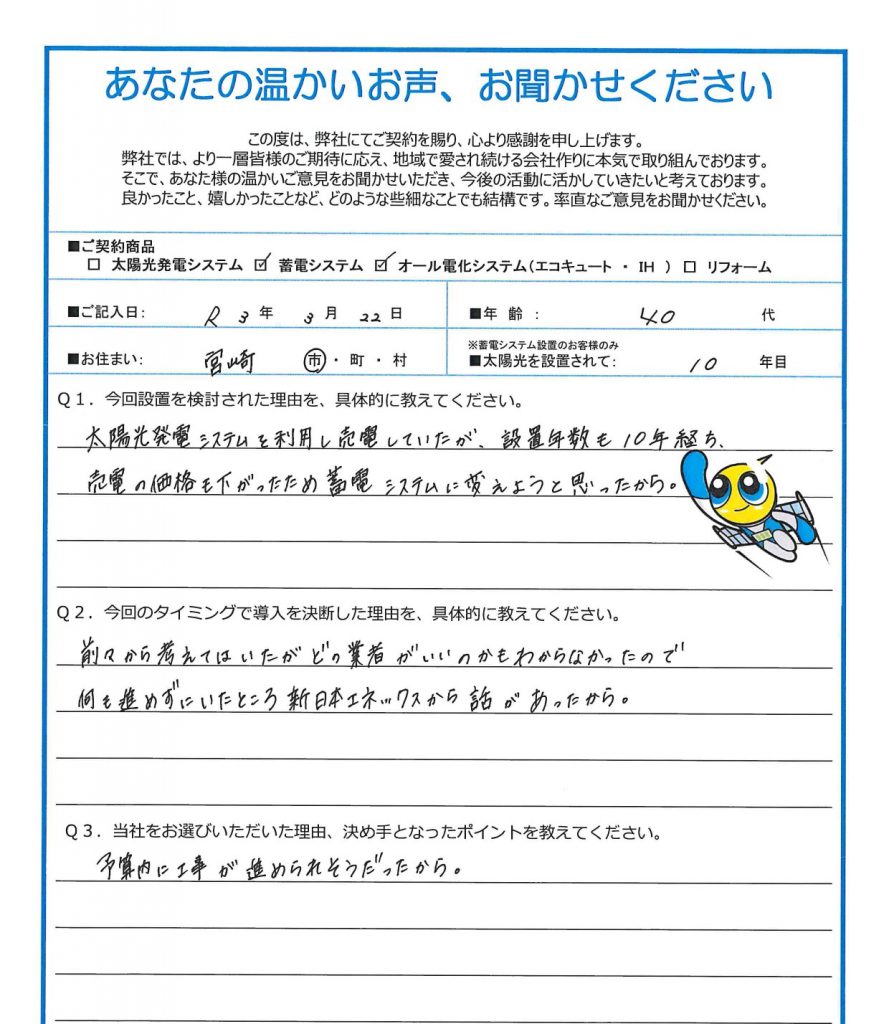 あなたの温かいお声、お聞かせください
この度は、弊社にてご契約を賜り、心より感謝を申し上げます。
弊社では、より一層皆様のご期待に応え、地域で愛され続ける会社作りに本気で取り組んでおります。
そこで、あなた様の温かいご意見をお聞かせいただき、今後の活動に活かしていきたいと考えております。
良かったこと、嬉しかったことなど、どのような些細なことでも結構です。率直なご意見をお聞かせください。
■ご契約商品
□ 太陽光発電システム ☑ 蓄電システム ☑ オール電化システム(エコキュート ・ IH ) □ リフォーム
■ご記入日: R 3 年 3 月 22 日 ■年 齢 : 40 代
■お住まい: 宮崎 市 ・ 町 ・ 村 ※蓄電システム設置のお客様のみ
■太陽光を設置されて: 10 年目
Q1. 今回設置を検討された理由を、具体的に教えてください。
太陽光発電システムを利用し売電していたが、設置年数も10年経ち、
売電の価格も下がったため蓄電システムに変えようと思ったから。
Q2. 今回のタイミングで導入を決断した理由を、具体的に教えてください。
前々から考えてはいたがどの業者がいいのかもわからなかったので
何も進めずにいたところ新日本エネックスから話があったから。
Q3. 当社をお選びいただいた理由、決め手となったポイントを教えてください。
予算内に工事が進められそうだったから。